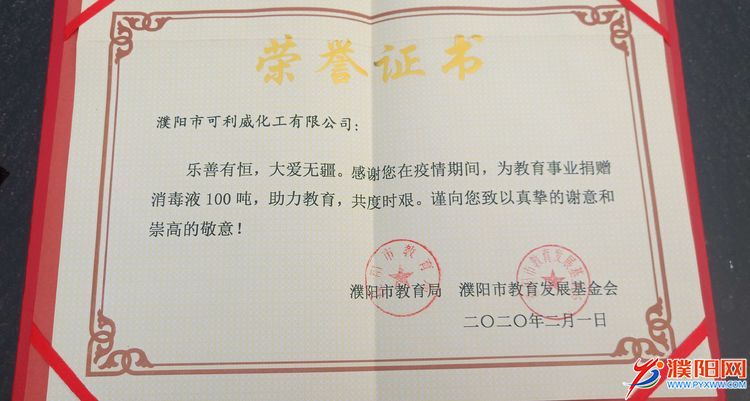 荣誉证书
濮阳市可利威化工有限公司：
乐善有恒，大爱无疆。感谢您在疫情期间，为教育事业捐赠
消毒液100吨，助力教育，共度时艰。谨向您致以真挚的谢意和
崇高的敬意！
濮阳市教育局 濮阳市教育发展基金会
二〇二〇年二月一日
濮阳网
WWW.PYXWW.COM